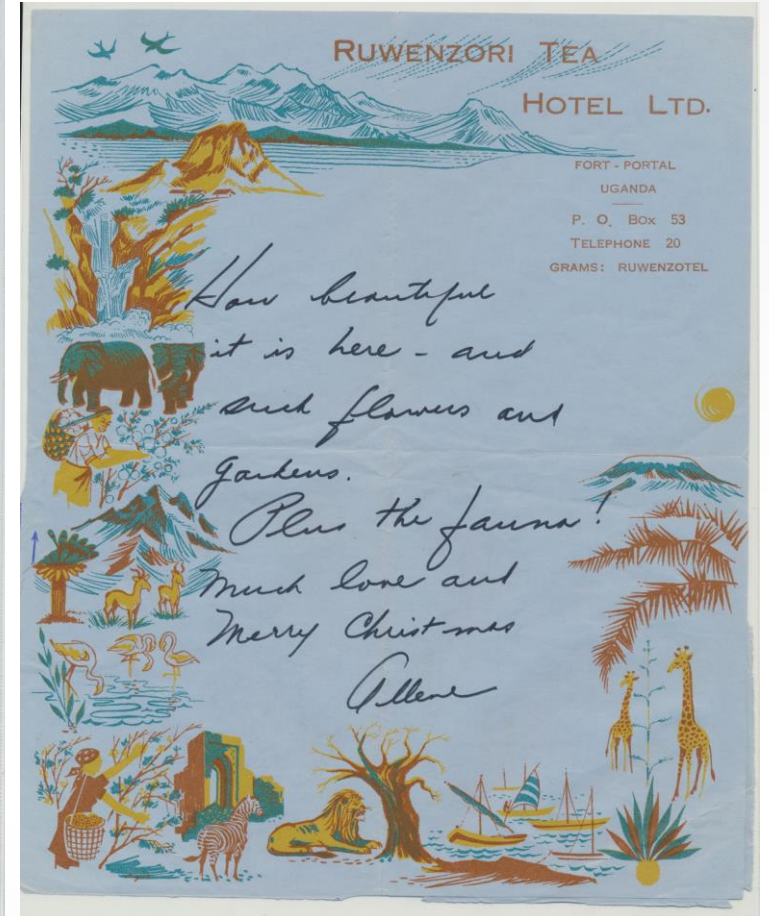 RUWENZORI TEA
HOTEL LTD.
FORT - PORTAL
UGANDA
P. O. BOX 53
TELEPHONE 20
GRAMS: RUWENZOTEL
How beautiful
it is here - and
such flowers and
gardens.
Plus the fauna!
Much love and
Merry Christmas
Allene